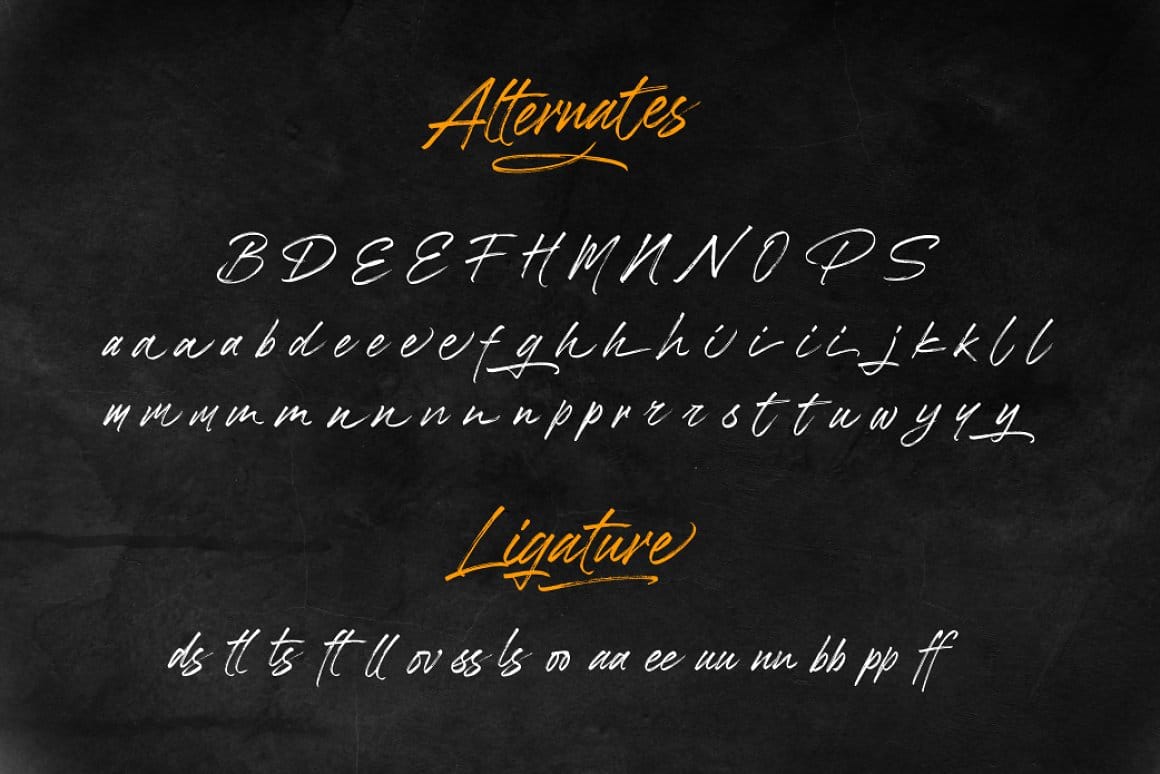 Alternates
B D E E F H M N N O P S
a a a a b d e e e e f g h h h i i i i j k k l l
m m m m m n n n n n p p r r r s t t u w y y y
Ligature
ds tl ts ft ll ov ss ls oo aa ee uu nn bb pp ff